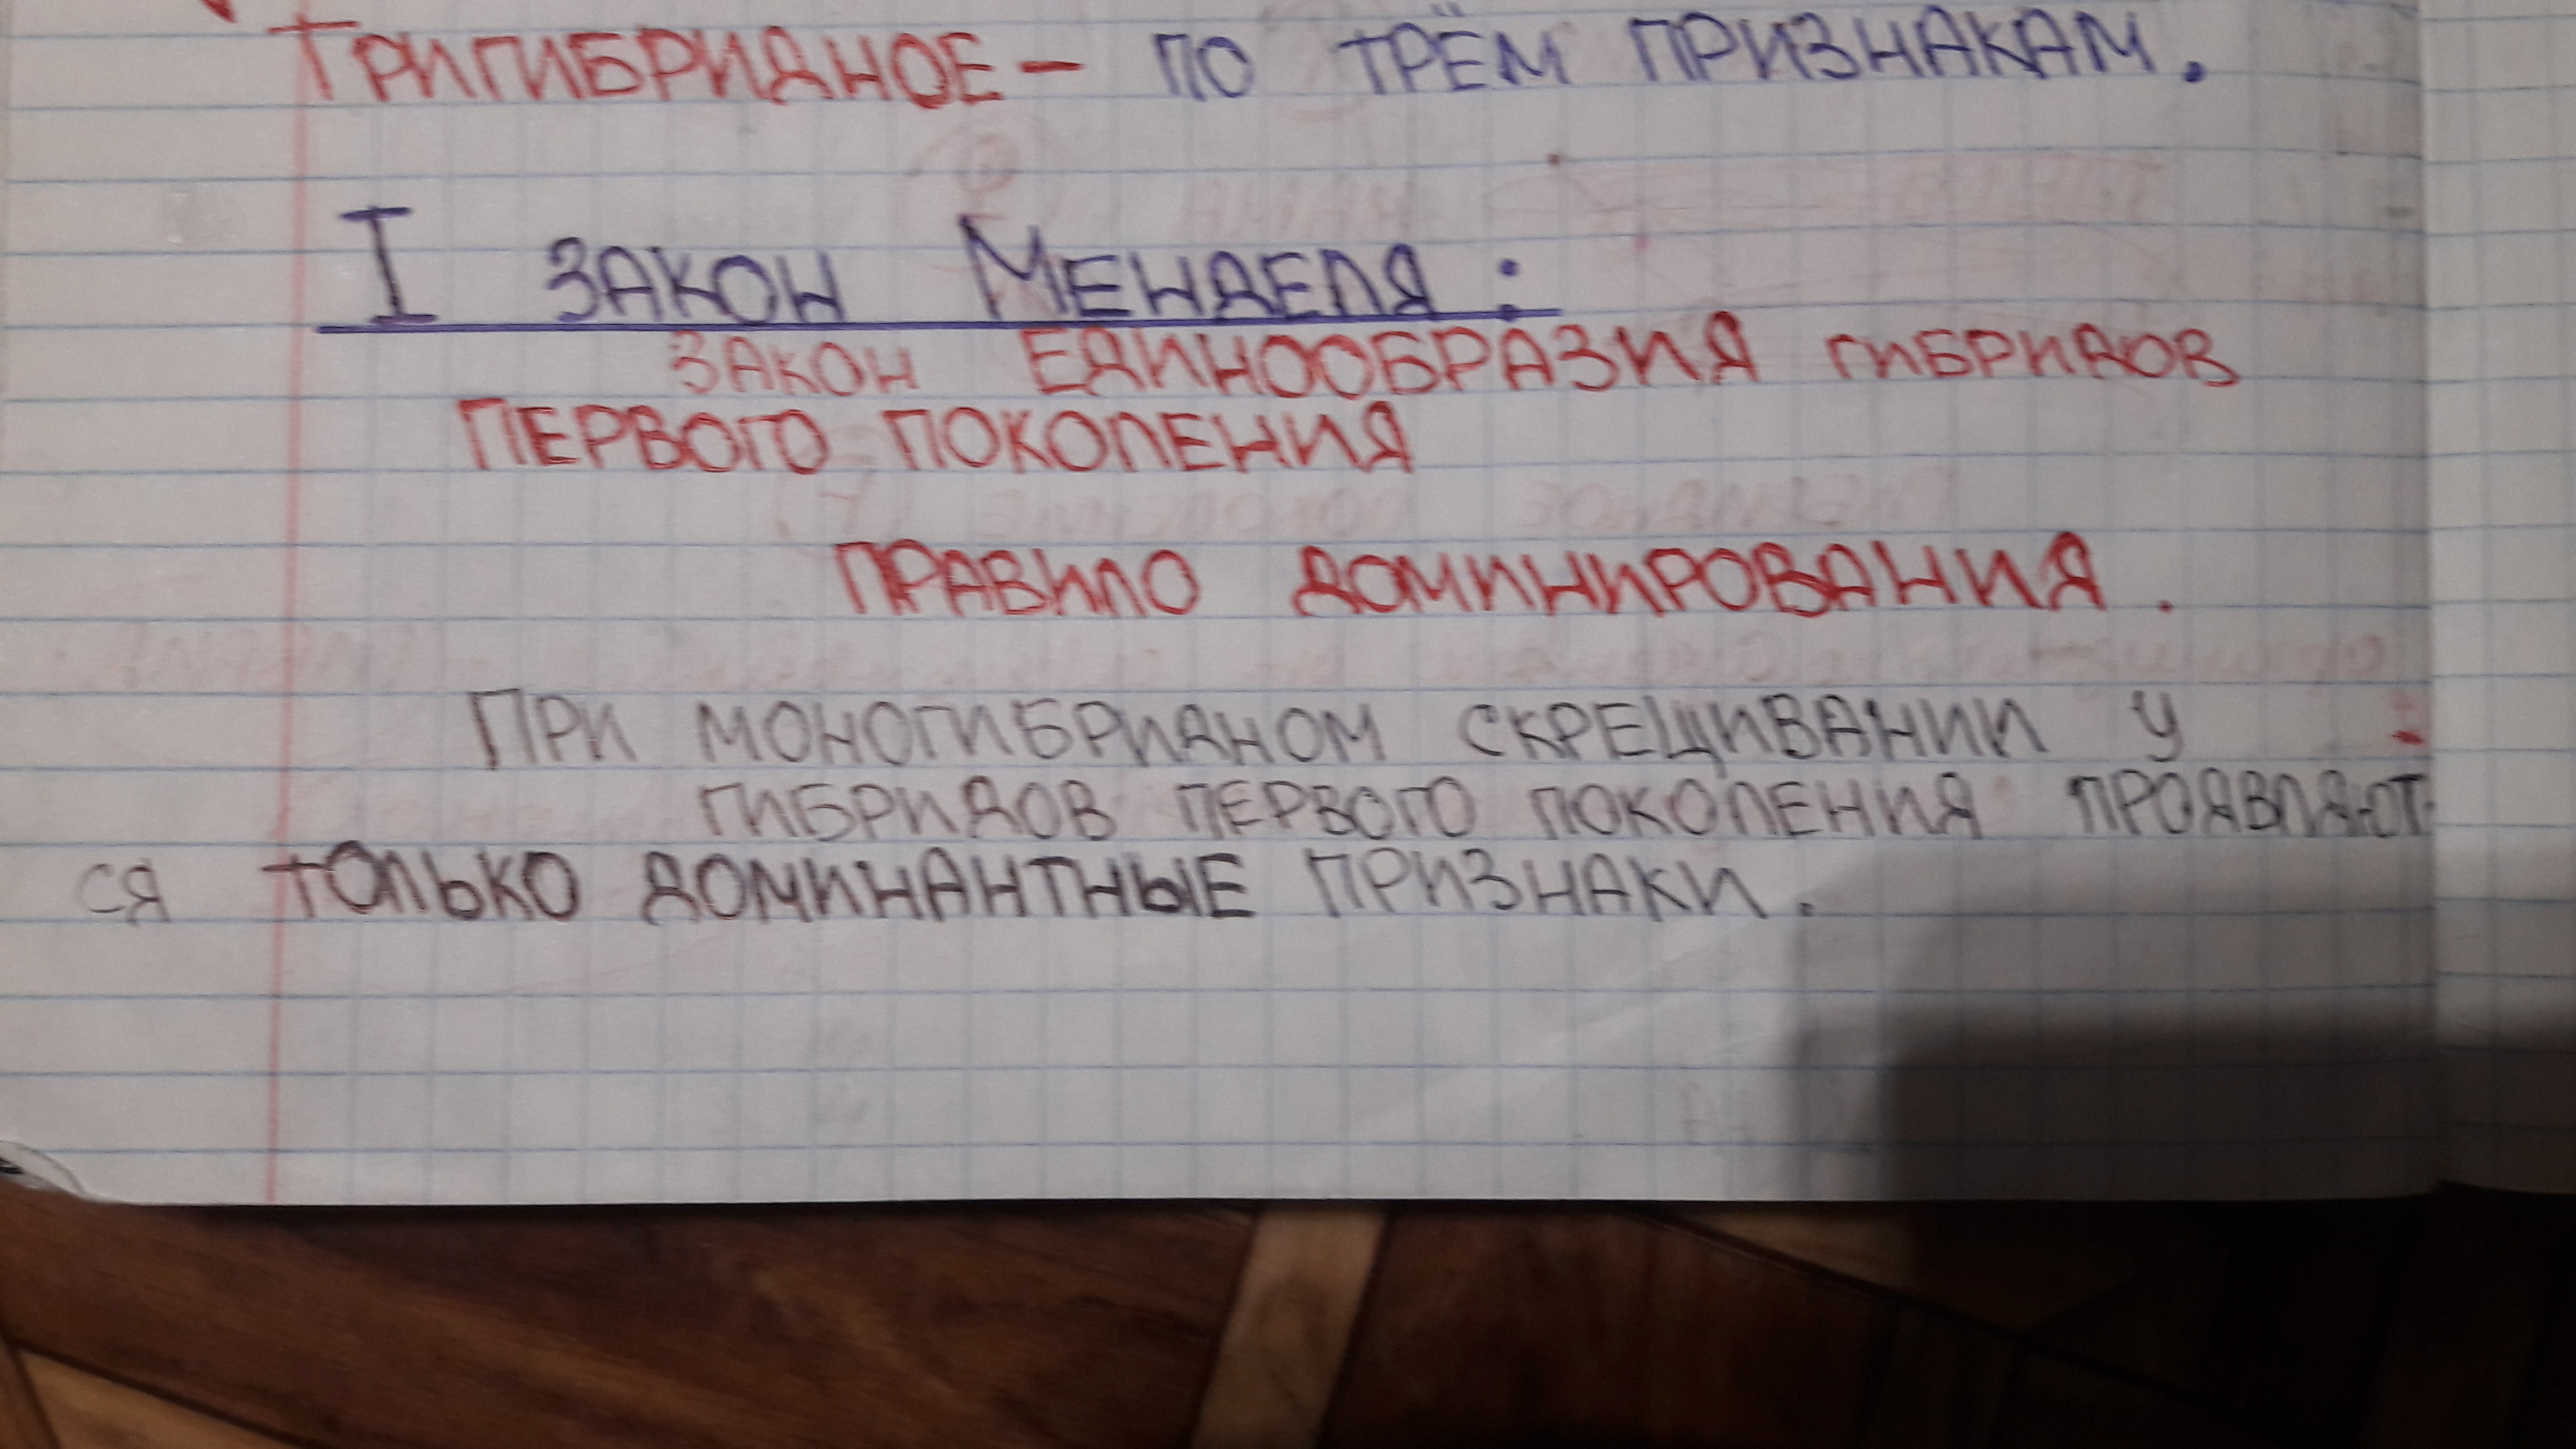 Тригибридное - по трём признакам.
I закон Менделя:
закон единообразия гибридов
первого поколения
правило доминирования.
При моногибридном скрещивании у
гибридов первого поколения проявляют-
ся только доминантные признаки.